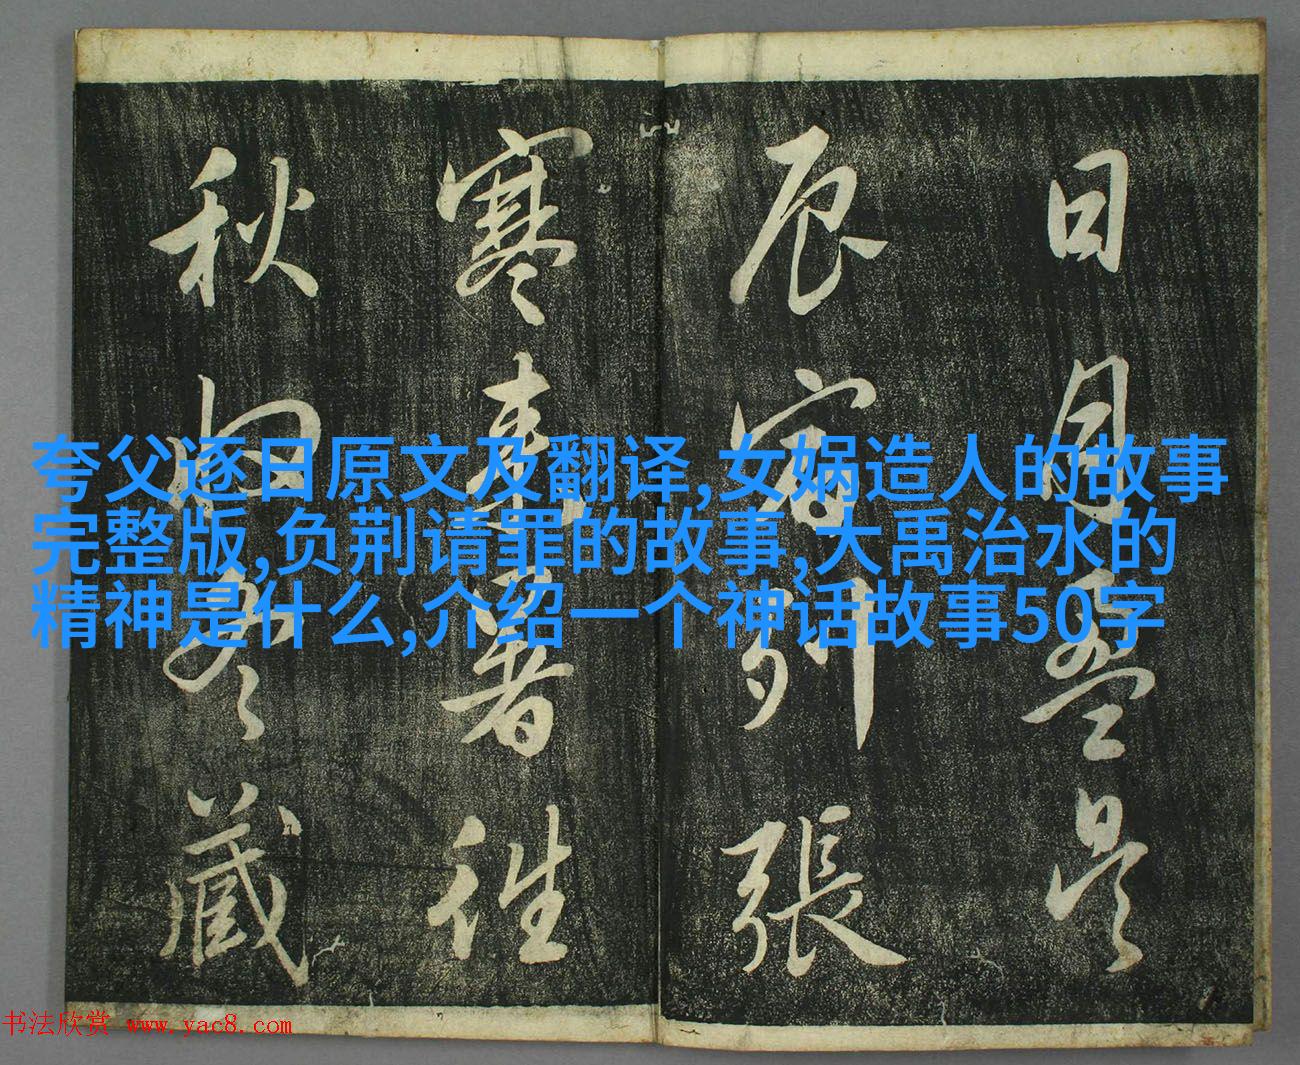 日月盈昃
辰宿列張
寒来暑往
秋收冬藏
夸父逐日原文及翻译,女娲造人的故事
完整版,负荆请罪的故事,大禹治水的
精神是什么,介绍一个神话故事50字
书法欣赏 www.yac8.com